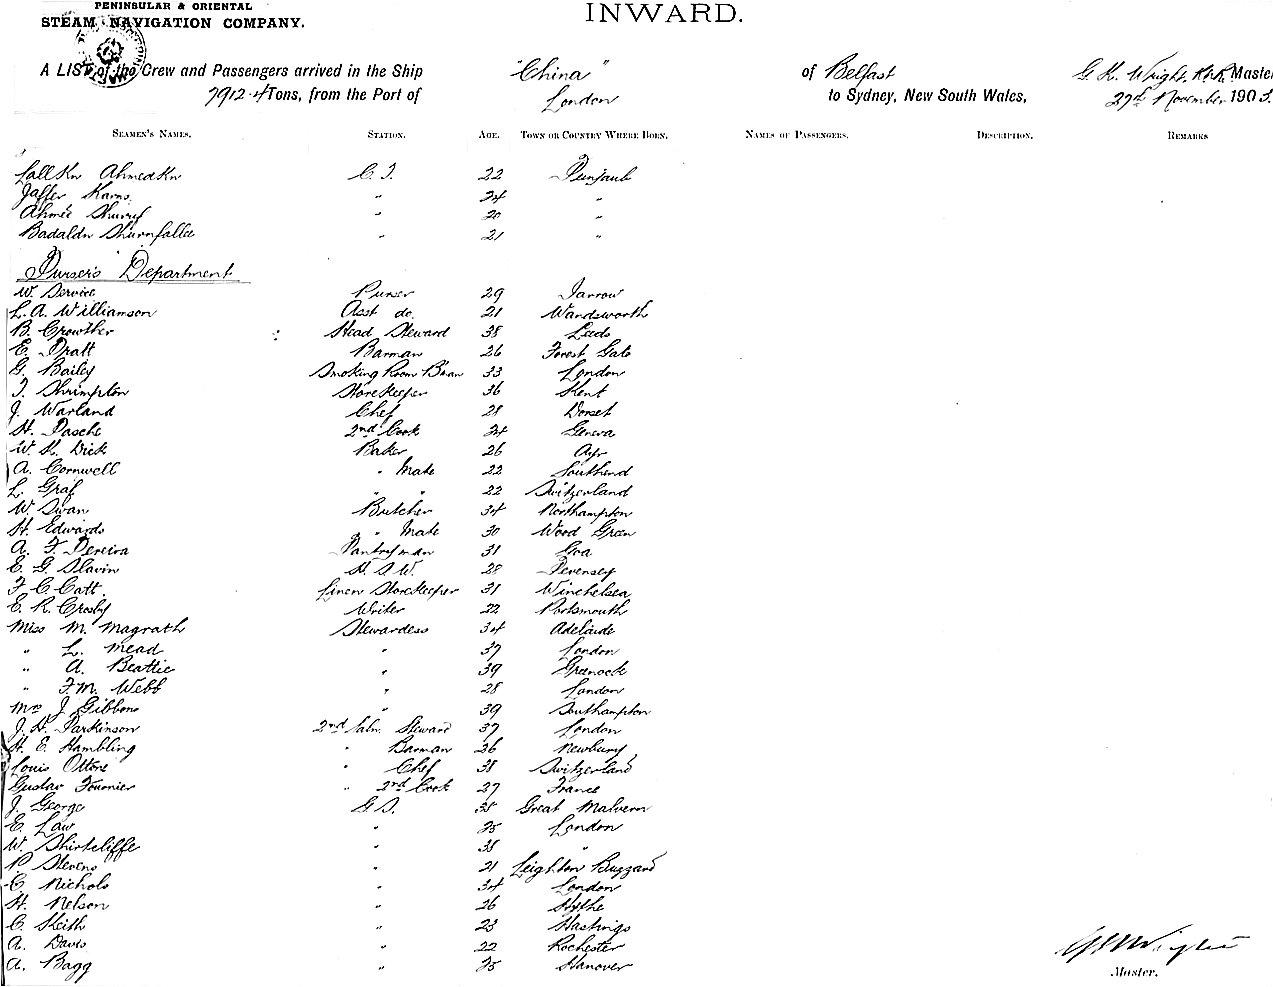 PENINSULAR & ORIENTAL
INWARD.
STEAM NAVIGATION COMPANY.
A LIST of the Crew and Passengers arrived in the Ship "China" of Belfast G. K. Wright, Master
7912·4 Tons, from the Port of London to Sydney, New South Wales, 27th November 1903.
SEAMEN'S NAMES. STATION. AGE. TOWN OR COUNTRY WHERE BORN. NAMES OF PASSENGERS. DESCRIPTION. REMARKS
Lall Kn Ahmed Kn C. T. 22 Punjaub
Jaffer Karns 24 "
Ahmee Shurry " 20 "
Badaldn Shurnfalla " 21 "
Purser's Department
W. Service Purser 29 Jarrow
L. A. Williamson Asst do. 21 Wandsworth
B. Crowther Head Steward 38 Leeds
E. Pratt Barman 26 Forest Gate
G. Bailey Smoking Room Bman 33 London
T. Shrimpton Storekeeper 36 Kent
J. Warland Chef 28 Dorset
H. Pasche 2nd Cook 24 Geneva
W. K. Dick Baker 26 Ayr
A. Cornwell " Mate 22 Southend
L. Graf " " 22 Switzerland
W. Swan Butcher 34 Northampton
H. Edwards " Mate 30 Wood Green
A. F. Pereira Pantryman 31 Goa
E. G. Slavin H. S. W. 28 Pevensey
F. C. Catt. Linen Storekeeper 31 Winchelsea
E. R. Crosby Writer 22 Portsmouth
Miss M. Magrath Stewardess 34 Adelaide
" L. Mead " 37 London
" A. Beattie " 39 Greenock
" F. M. Webb " 28 London
Mrs J. Gibbons " 39 Southampton
J. H. Parkinson 2nd Saln. Steward 37 London
H. E. Hambling " Barman 26 Newbury
Louis Ottone " Chef 38 Switzerland
Gustav Fournier " 2nd Cook 27 France
J. George G. S. 35 Great Malvern
E. Law " 25 London
W. Shirtcliffe " 38 "
P. Stevens " 21 Leighton Buzzard
C. Nichols " 34 London
H. Nelson " 26 Hythe
C. Keith " 23 Hastings
A. Davis " 22 Rochester
A. Bagg " 25 Hanover
Master.